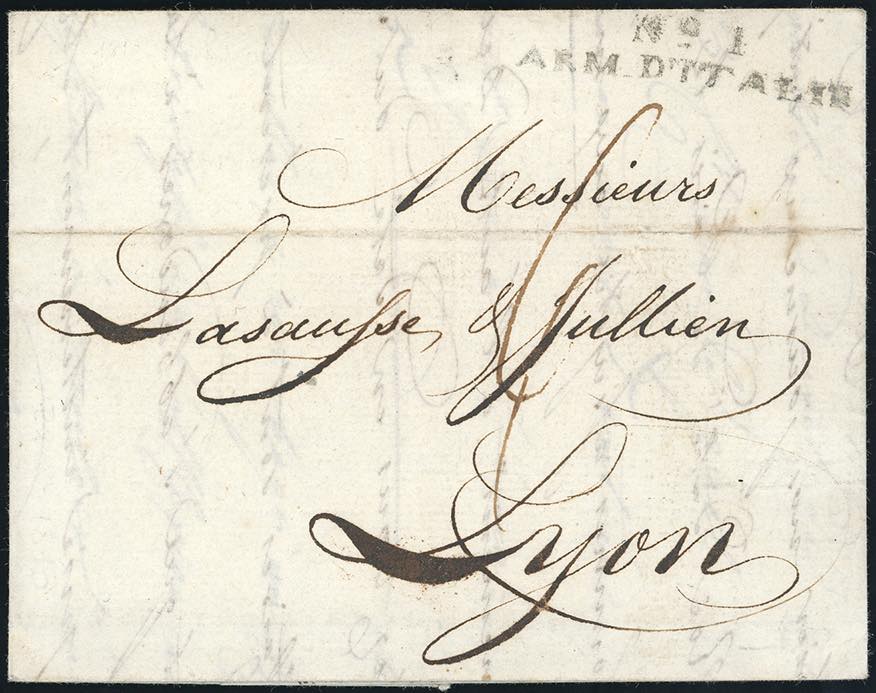 Nº 1
ARM. D'ITALIE
Messieurs
Lasausse & Jullien
Lyon